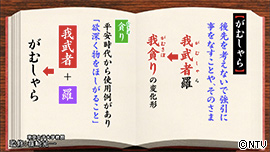 【がむしゃら】
後先を考えないで強引に
事をなすことや、そのさま
がむしゃら
我武者羅
がむさぼ
我貪りの変化形
貪り
平安時代から使用例があり
「欲深く物をほしがること」
我武者+羅
がむしゃら
©NTV